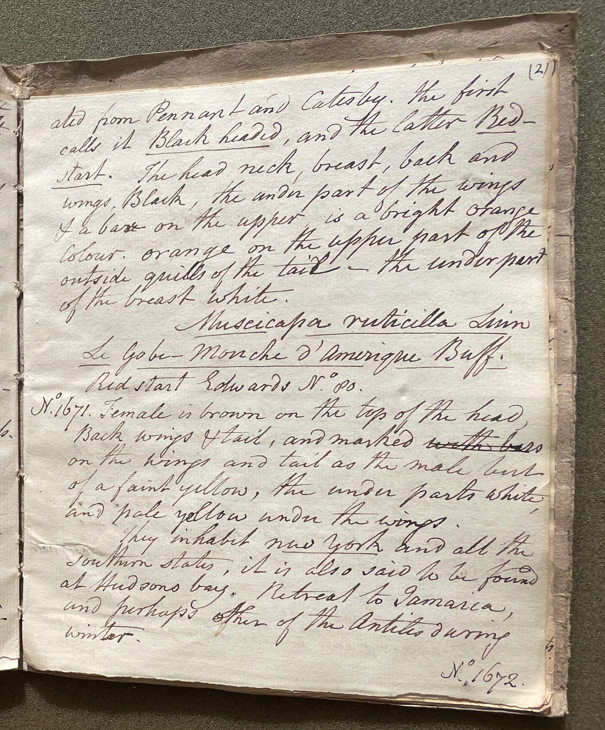 (21)
ated from Pennant and Catesby. the first
calls it Black headed, and the latter Red-
start. The head neck, breast, back and
wings, Black, the under part of the wings
& a bare on the upper is a bright orange
Colour. orange on the upper part of the
outside quills of the tail – the under part
of the breast white.
Muscicapa ruticilla Linn
Le Gobe-Mouche d'Amerique Buff.
Redstart Edwards No. 80.
No. 1671. Female is brown on the top of the head,
Back wings & tail, and marked with bars
on the wings and tail as the male but
of a faint yellow, the under parts white,
and pale yellow under the wings.
they inhabit new york and all the
southern states, it is also said to be found
at Hudsons bay. Retreat to Jamaica,
and perhaps other of the Antiles during
winter.
No. 1672.